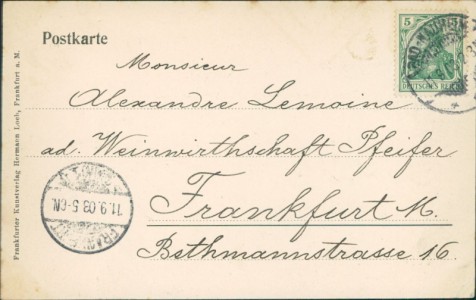 Postkarte
5
DEUTSCHES REICH
Monsieur
Alexandre Lemoine
ad. Weinwirthschaft Pfeifer
Frankfurt M.
Bethmannstrasse 16
11.9.03.5-6N.
Frankfurter Kunstverlag Hermann Loeb, Frankfurt a. M.